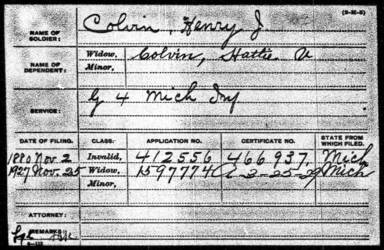 (3-M-6)
NAME OF SOLDIER: Colvin, Henry J.
NAME OF DEPENDENT: Widow, Colvin, Hattie V
Minor,
SERVICE: G 4 Mich Inf
DATE OF FILING. CLASS. APPLICATION NO. CERTIFICATE NO. STATE FROM WHICH FILED.
1880 Nov. 2 Invalid, 412556 466937. Mich
1927 Nov. 25 Widow, 1597774 A-2-25-29 Mich
Minor,
ATTORNEY:
REMARKS: